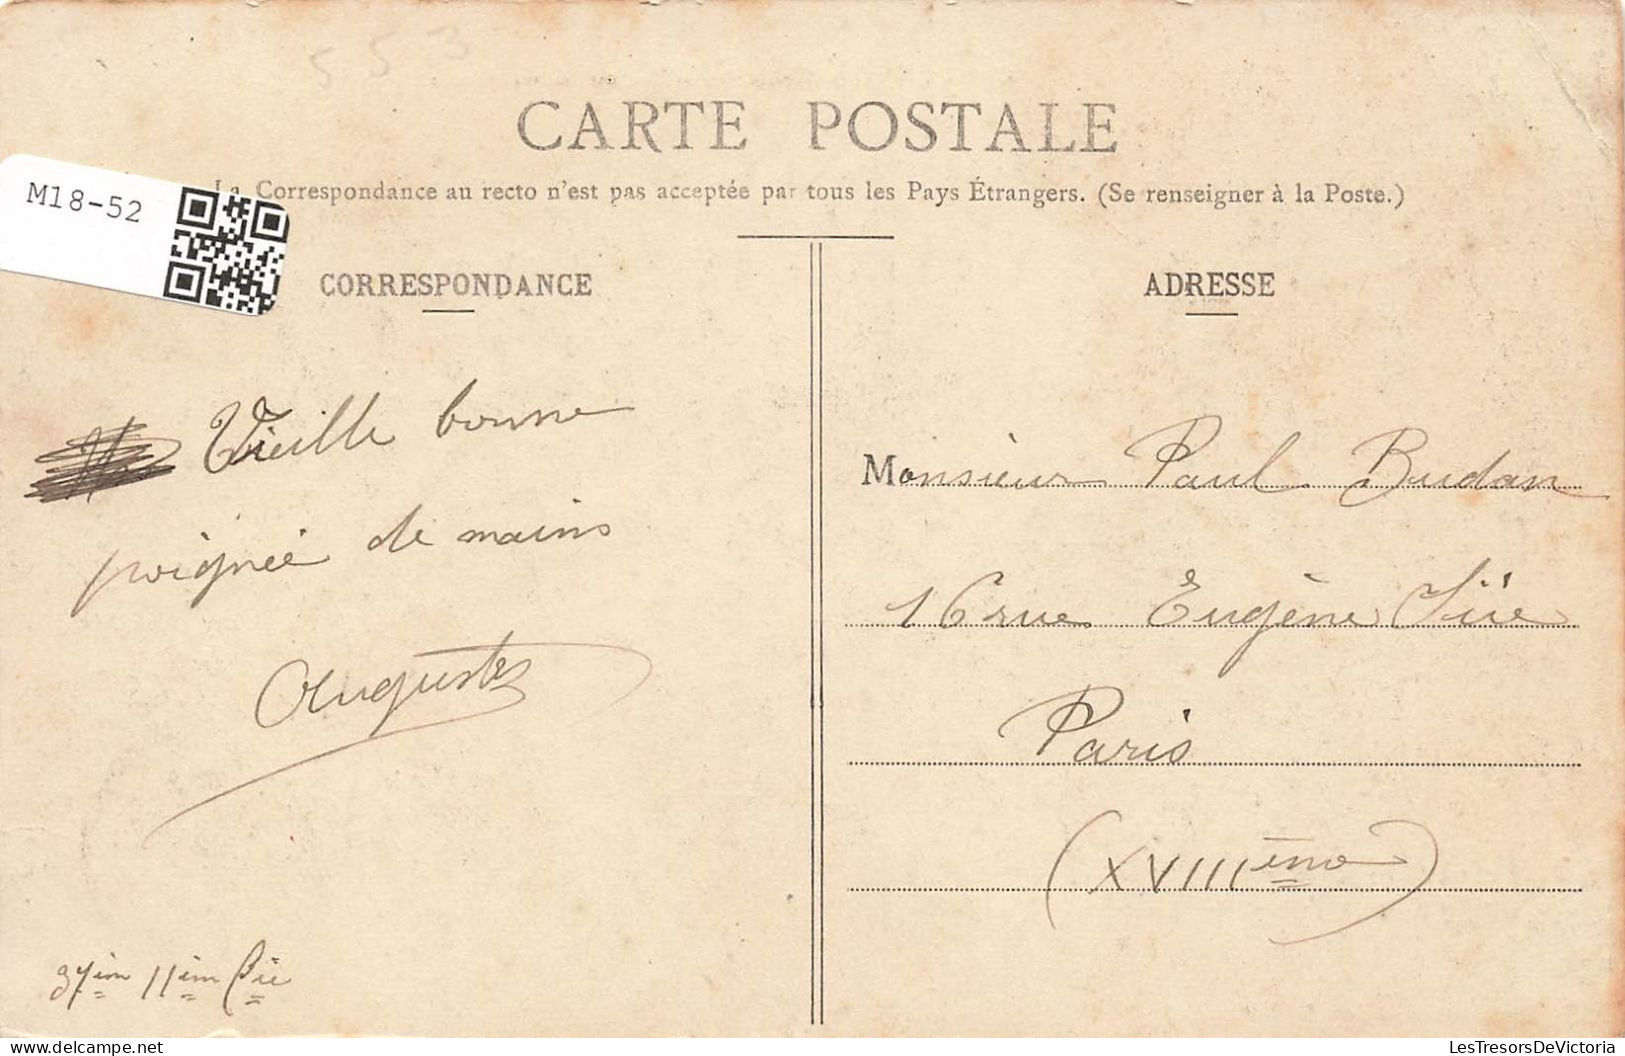 553
CARTE POSTALE
La Correspondance au recto n'est pas acceptée par tous les Pays Étrangers. (Se renseigner à la Poste.)
M18-52
CORRESPONDANCE
Vieille bonne
poignée de mains
Auguste
37èm 11èm Cie
ADRESSE
Monsieur Paul Budan
16 rue Eugène Süe
Paris
(XVIIIème)
LesTresorsDeVictoria
www.delcampe.net